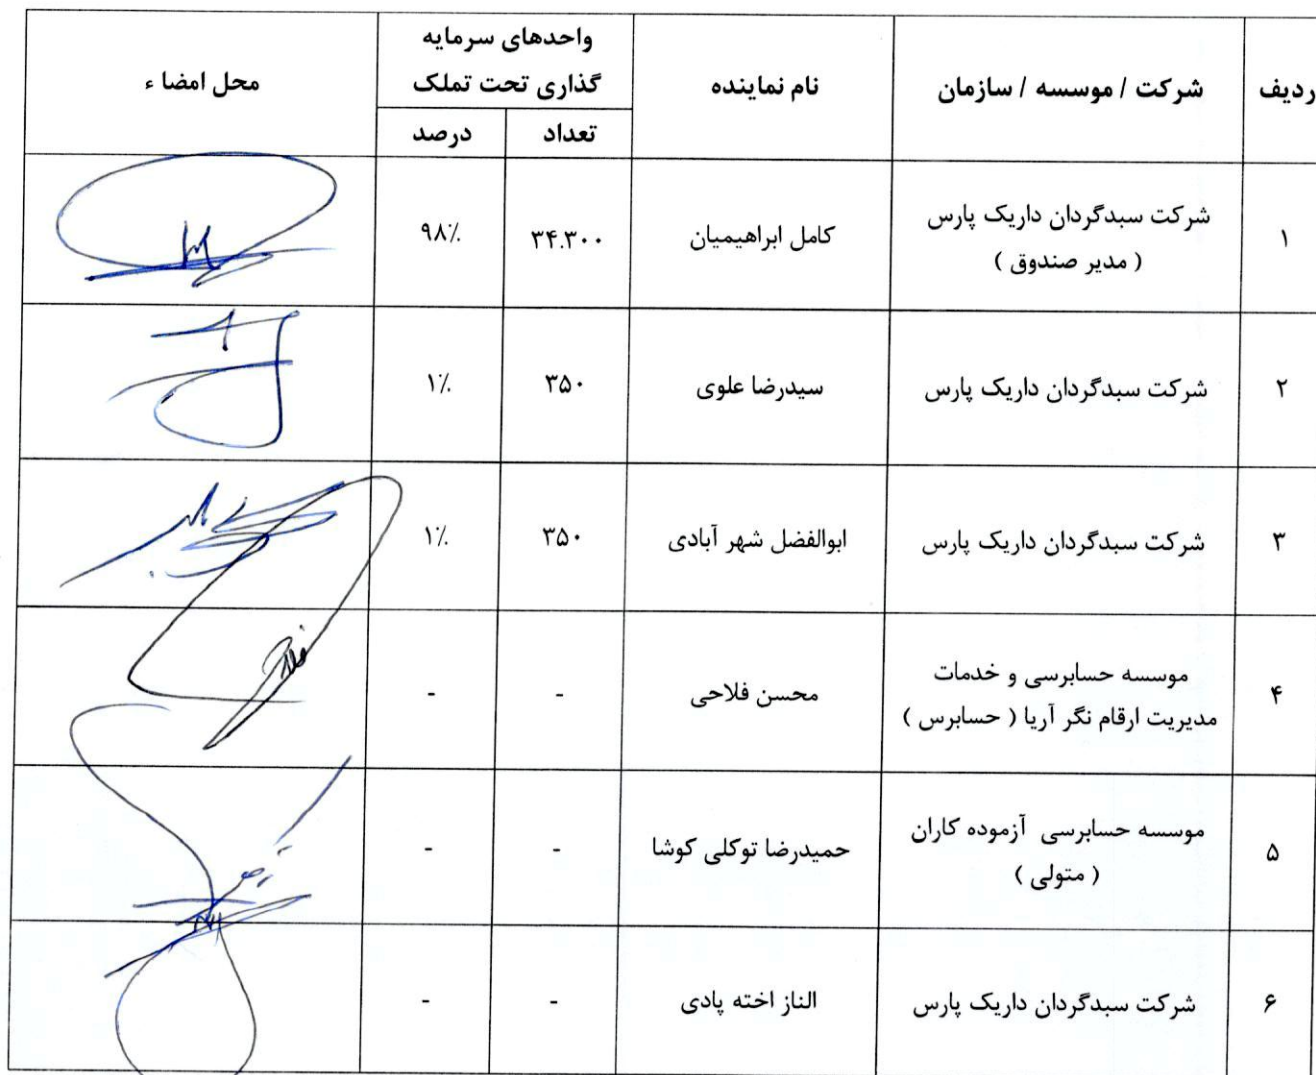 ردیف
شرکت / موسسه / سازمان
نام نماینده
واحدهای سرمایه
گذاری تحت تملک
تعداد
درصد
محل امضا ء
۱
شرکت سبدگردان داریک پارس
( مدیر صندوق )
کامل ابراهیمیان
۳۴.۳۰۰
۹۸٪
۲
شرکت سبدگردان داریک پارس
سیدرضا علوی
۳۵۰
۱٪
۳
شرکت سبدگردان داریک پارس
ابوالفضل شهر آبادی
۳۵۰
۱٪
۴
موسسه حسابرسی و خدمات
مدیریت ارقام نگر آریا ( حسابرس )
محسن فلاحی
-
-
۵
موسسه حسابرسی آزموده کاران
( متولی )
حمیدرضا توکلی کوشا
-
-
۶
شرکت سبدگردان داریک پارس
الناز اخته پادی
-
-